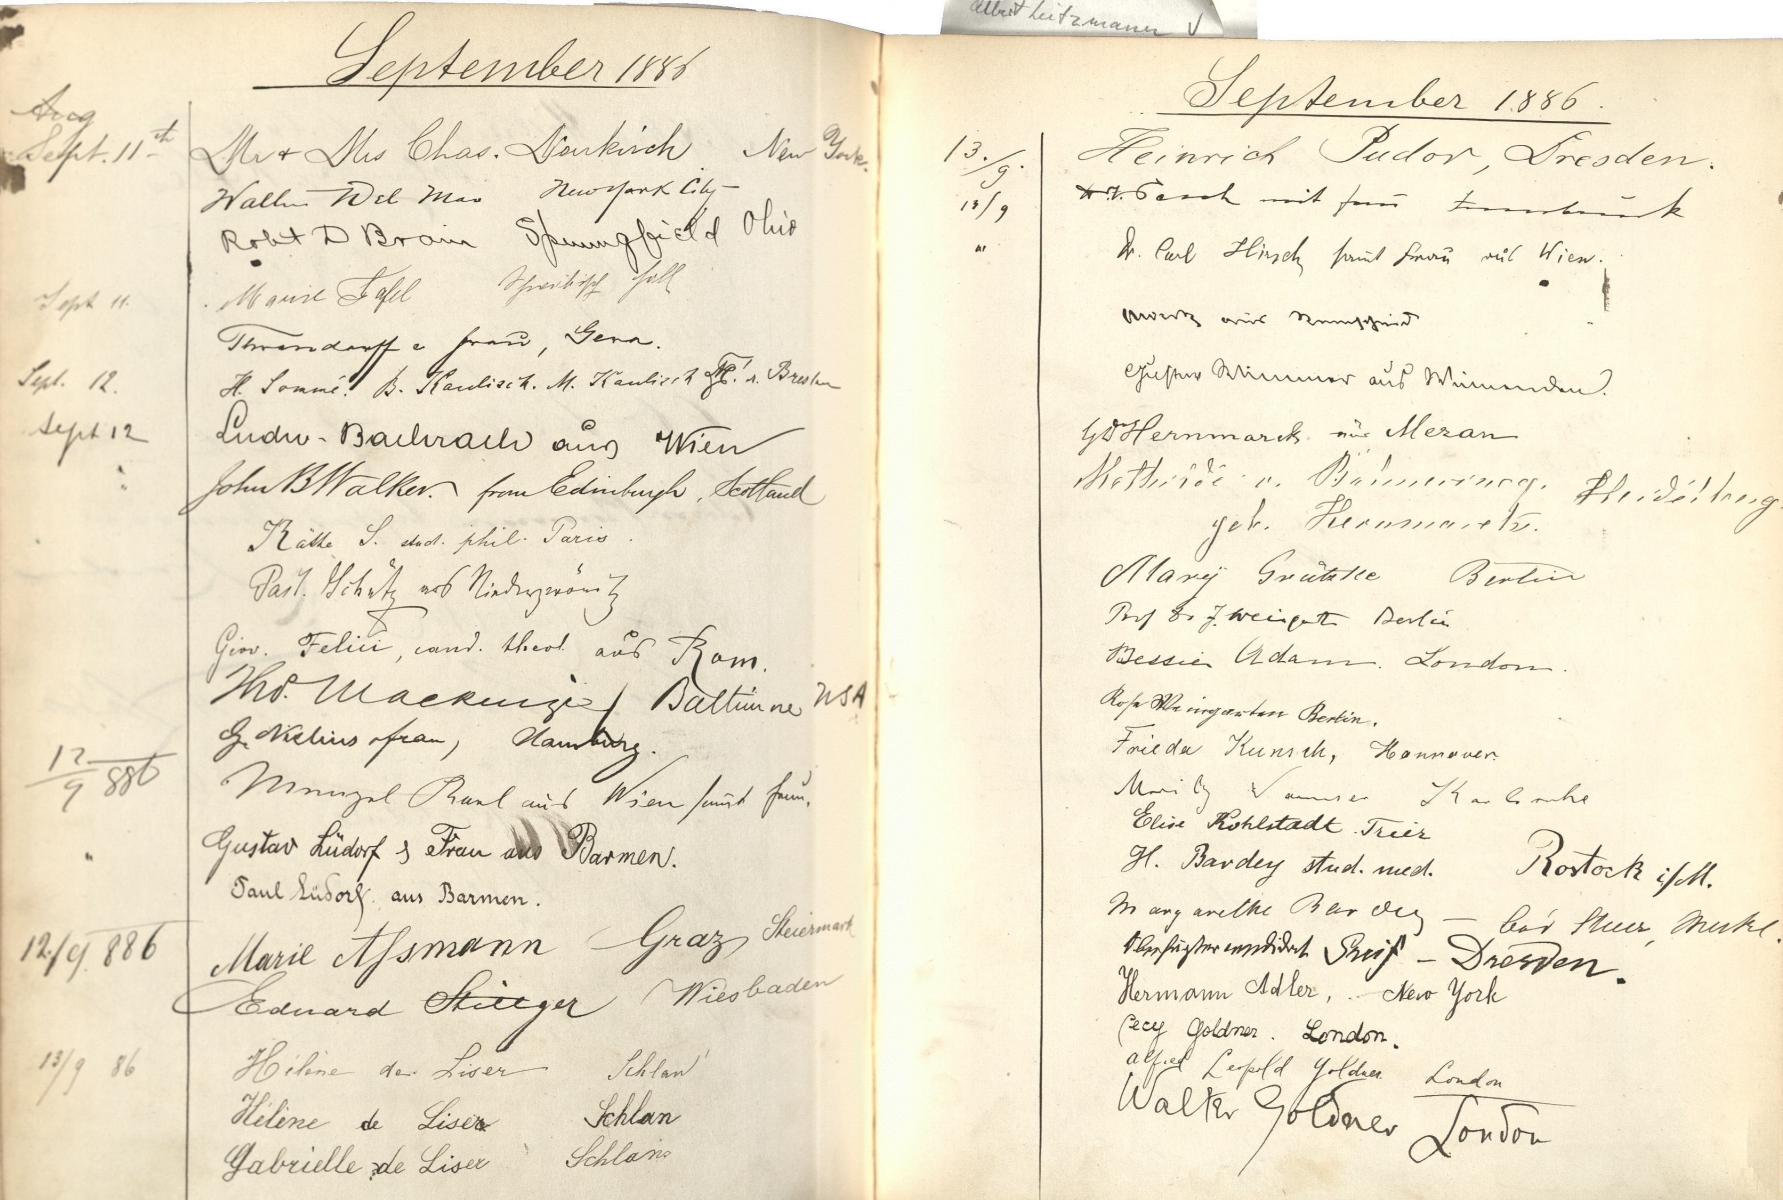 Albert Leitzmann
September 1886
Aug
Sept. 11th Mr + Mrs Chas. Neukirch New York.
Walter Del Mar New York City
Robt D Brain Springfield Ohio
Sept 11. Marie Tafel
Frau, Gera.
Sept. 12. H. Sommé. B. Kaulisch. M. Kaulisch
Sept 12 Ludw. Bachrach aus Wien
" John B Walker. from Edinburgh, Scotland
Käthe S. stud. phil. Paris.
Past. Schütz aus
Giov. Felici, cand. theol. aus Rom.
Thos. Mackenzie / Baltimore USA
G. Nielius & frau, Hamburg.
12/9 886 Karl aus Wien sammt Frau.
" Gustav Lüdorf & Frau aus Barmen.
Paul Lüdorf. aus Barmen.
12./9. 886 Marie Assmann Graz Steiermark
Eduard Wiesbaden
13/9 86 Hélène de Liser Schlan
Hélène de Liser Schlan
Gabrielle de Liser Schlan
September 1886.
13./9. Heinrich Pudor, Dresden.
13/9 mit Frau Innsbruck
" Dr. Carl Hirsch sammt Frau aus Wien.
aus Remscheid
Gustav Wimmer aus
Hernmarck aus Meran
Mathilde v. Heidelberg.
geb. Hernmarck.
Mary Grützke Berlin
Prof Dr J. Weingarten Berlin
Bessie Adam. London.
Rosa Weingarten Berlin.
Frieda Kunsch, Hannover.
Moritz Karlsruhe
Elise Kohlstadt Trier
H. Bardey stud. med. Rostock i/M.
Margarethe Bardey —
— Dresden.
Hermann Adler, New York
Cecy Goldner. London.
Alfred Leopold Goldner London
Walter Goldner London